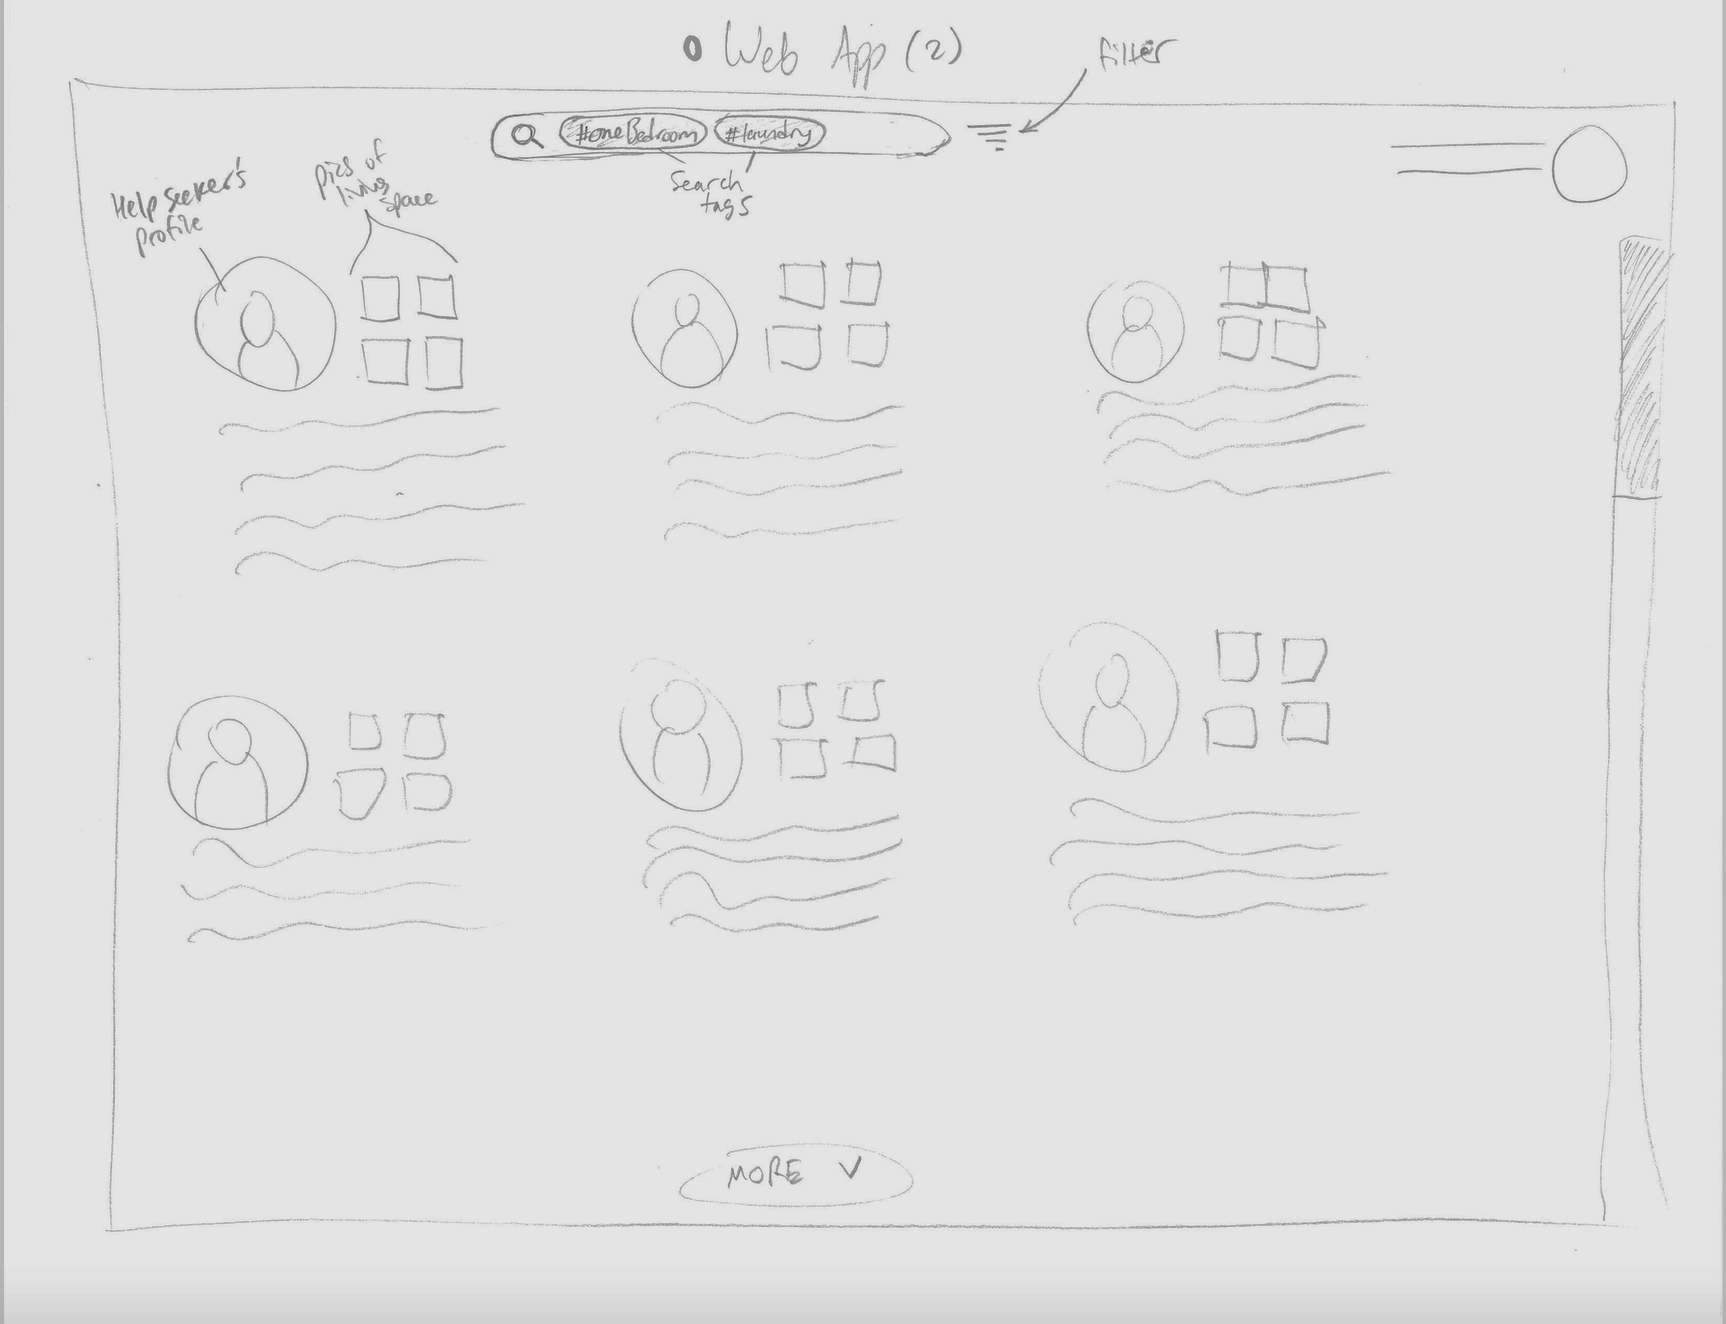 Web App (2)
filter
#oneBedroom #laundry
Search
tags
Help seeker's
profile
pics of
living
space
MORE